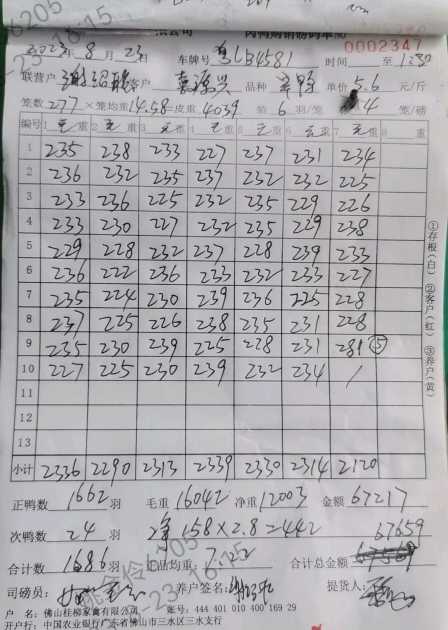 肉鸭购销磅码单
0002347
2023年 8月 23日 车牌号 粤LB4581 时间 至 1230
联营户 客户 品种 单价 5.6 元/斤
笼数 277 ×笼均重 14.58 皮重 4039 装 6 羽/笼 4 笼/磅
编号 1 毛重 2 毛重 3 毛重 4 毛重 5 毛重 6 毛重 7 毛重 8 重
1 235 238 233 227 237 231 234
2 236 232 235 237 232 232 225
3 233 236 225 232 235 229 226
4 233 230 227 232 235 229 238
5 229 228 232 237 228 239 233
6 236 222 236 233 232 233 227
7 235 224 230 239 236 225 228
8 237 225 226 238 235 231 228
9 235 230 239 225 228 231 281 ⑤
10 227 225 230 239 232 234 /
11
12
13
小计 2336 2290 2313 2339 2330 2314 2120
正鸭数 1662 羽 毛重 16042 净重 12003 金额 67217
次鸭数 24 羽 净 158×2.8=442 67659
合计数 1686 羽 均重 7.122 合计总金额
司磅员: 养户签名: 提货人:
户 名: 佛山桂柳家禽有限公司 账号: 444 401 010 400 169 29
开户行: 中国农业银行广东省佛山市三水区三水支行
①存根(白) ②客户(红) ③养户(黄)